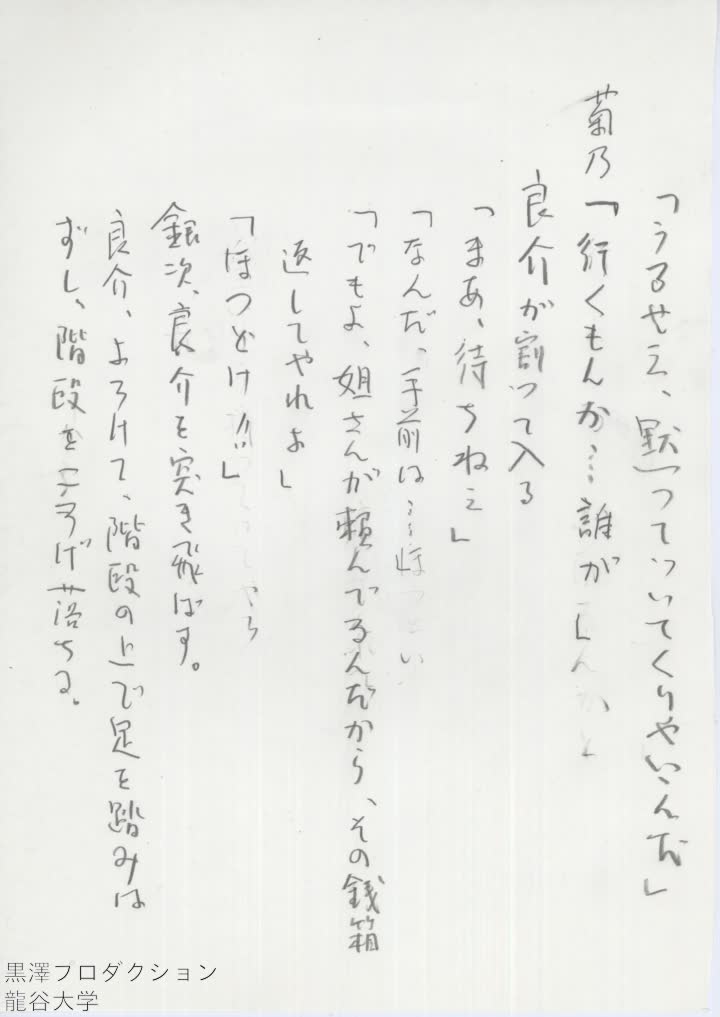 「うるせえ、黙ってついてくりやいいんだ」
菊乃「行くもんか…誰が」
良介が割って入る
「まあ、待ちねえ」
「なんだ、手前は…
「でもよ、姐さんが頼んでるんだから、その銭箱
返してやれよ」
「ほっとけ!!」
銀次、良介を突き飛ばす。
良介、よろけて、階段の上で足を踏みは
ずし、階段を転げ落ちる。
黒澤プロダクション
龍谷大学